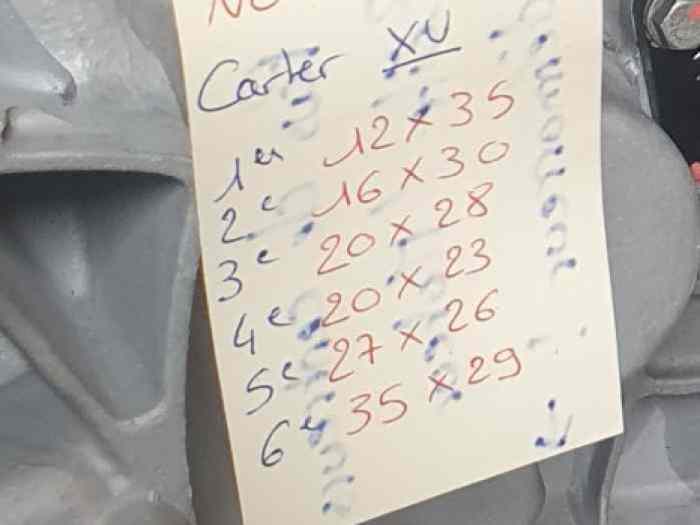 Carter XV
1er 12 x 35
2e 16 x 30
3e 20 x 28
4e 20 x 23
5e 27 x 26
6e 35 x 29